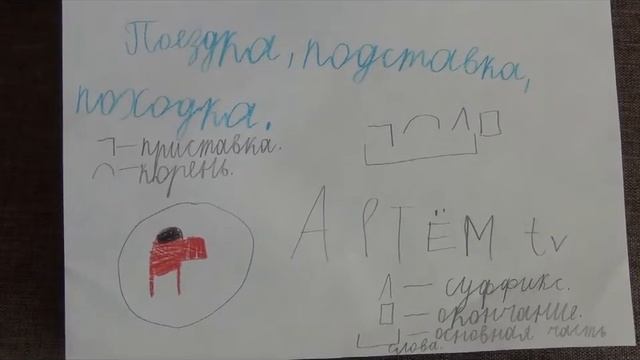 Поездка, подставка,
походка.
¬ — приставка.
⌒ — корень.
АРТЁМ tv
^ — суффикс.
□ — окончание.
— основная часть
слова.